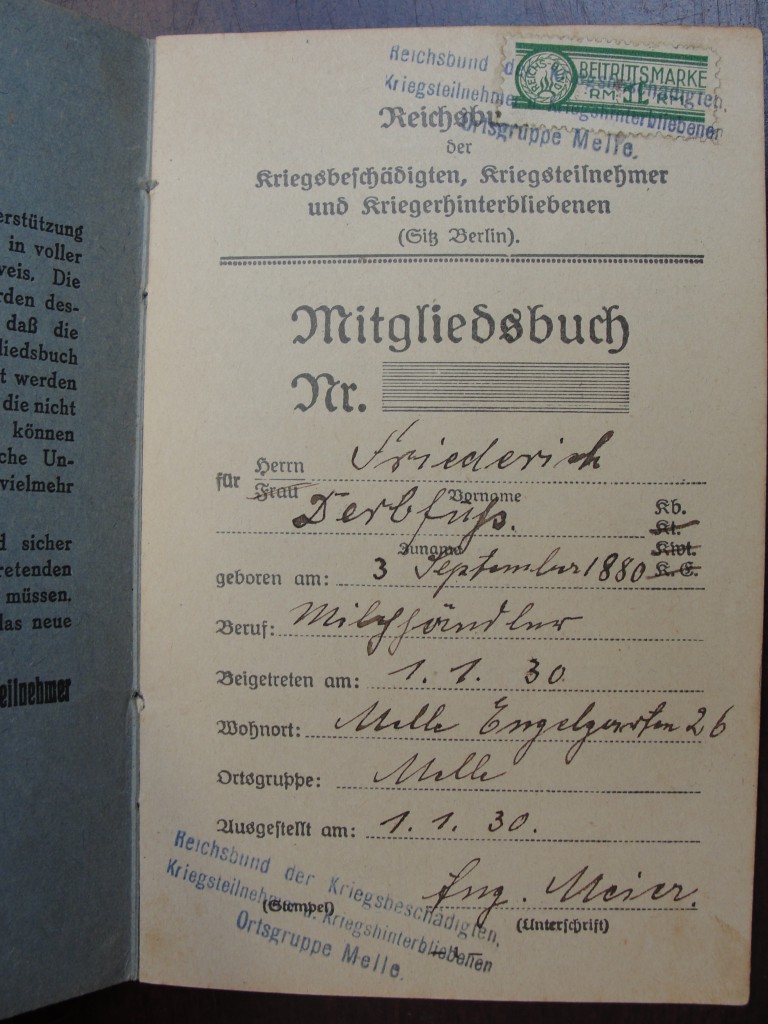 Reichsbund der Kriegsbeschädigten,
Kriegsteilnehmer u. Kriegshinterbliebenen
Ortsgruppe Melle.
REICHSBUND
BEITRITTSMARKE
RM. 1 RM.
Reichsbu
der
Kriegsbeschädigten, Kriegsteilnehmer
und Kriegerhinterbliebenen
(Sitz Berlin).
Mitgliedsbuch
Nr.
für Herrn Frau Friederich
Vorname
Derbfuss.
Zuname
Kb.
Kt.
Kwt.
K. E.
geboren am: 3 September 1880
Beruf: Milchhändler
Beigetreten am: 1. 1. 30
Wohnort: Melle Engelgarten 26
Ortsgruppe: Melle
Ausgestellt am: 1. 1. 30.
Reichsbund der Kriegsbeschädigten,
Kriegsteilnehmer u. Kriegshinterbliebenen
Ortsgruppe Melle.
(Stempel)
Meier.
(Unterschrift)
erstützung
in voller
weis. Die
rden des-
daß die
liedsbuch
t werden
die nicht
können
che Un-
vielmehr
d sicher
retenden
müssen.
das neue
eilnehmer